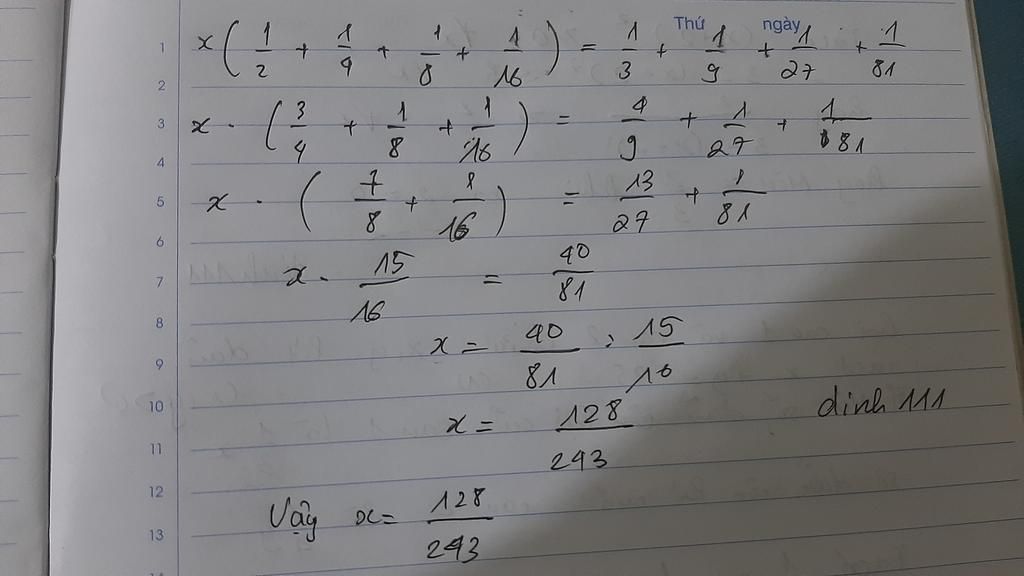 Thứ ngày
1 x(1/2 + 1/4 + 1/8 + 1/16) = 1/3 + 1/9 + 1/27 + 1/81
2
3 x · (3/4 + 1/8 + 1/16) = 4/9 + 1/27 + 1/81
4
5 x · (7/8 + 1/16) = 13/27 + 1/81
6
7 x · 15/16 = 40/81
8
9 x = 40/81 : 15/16
10 x = 128/243 dinh 111
11
12
13 Vậy x = 128/243